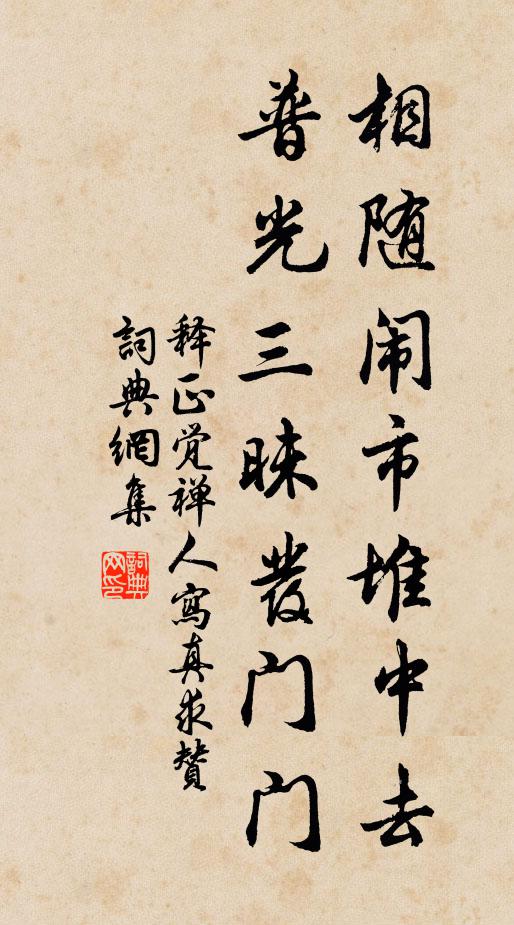 相随闹市堆中去
普光三昧發门门
释正觉禅人寫真求赞
詞典網集
詞典网印